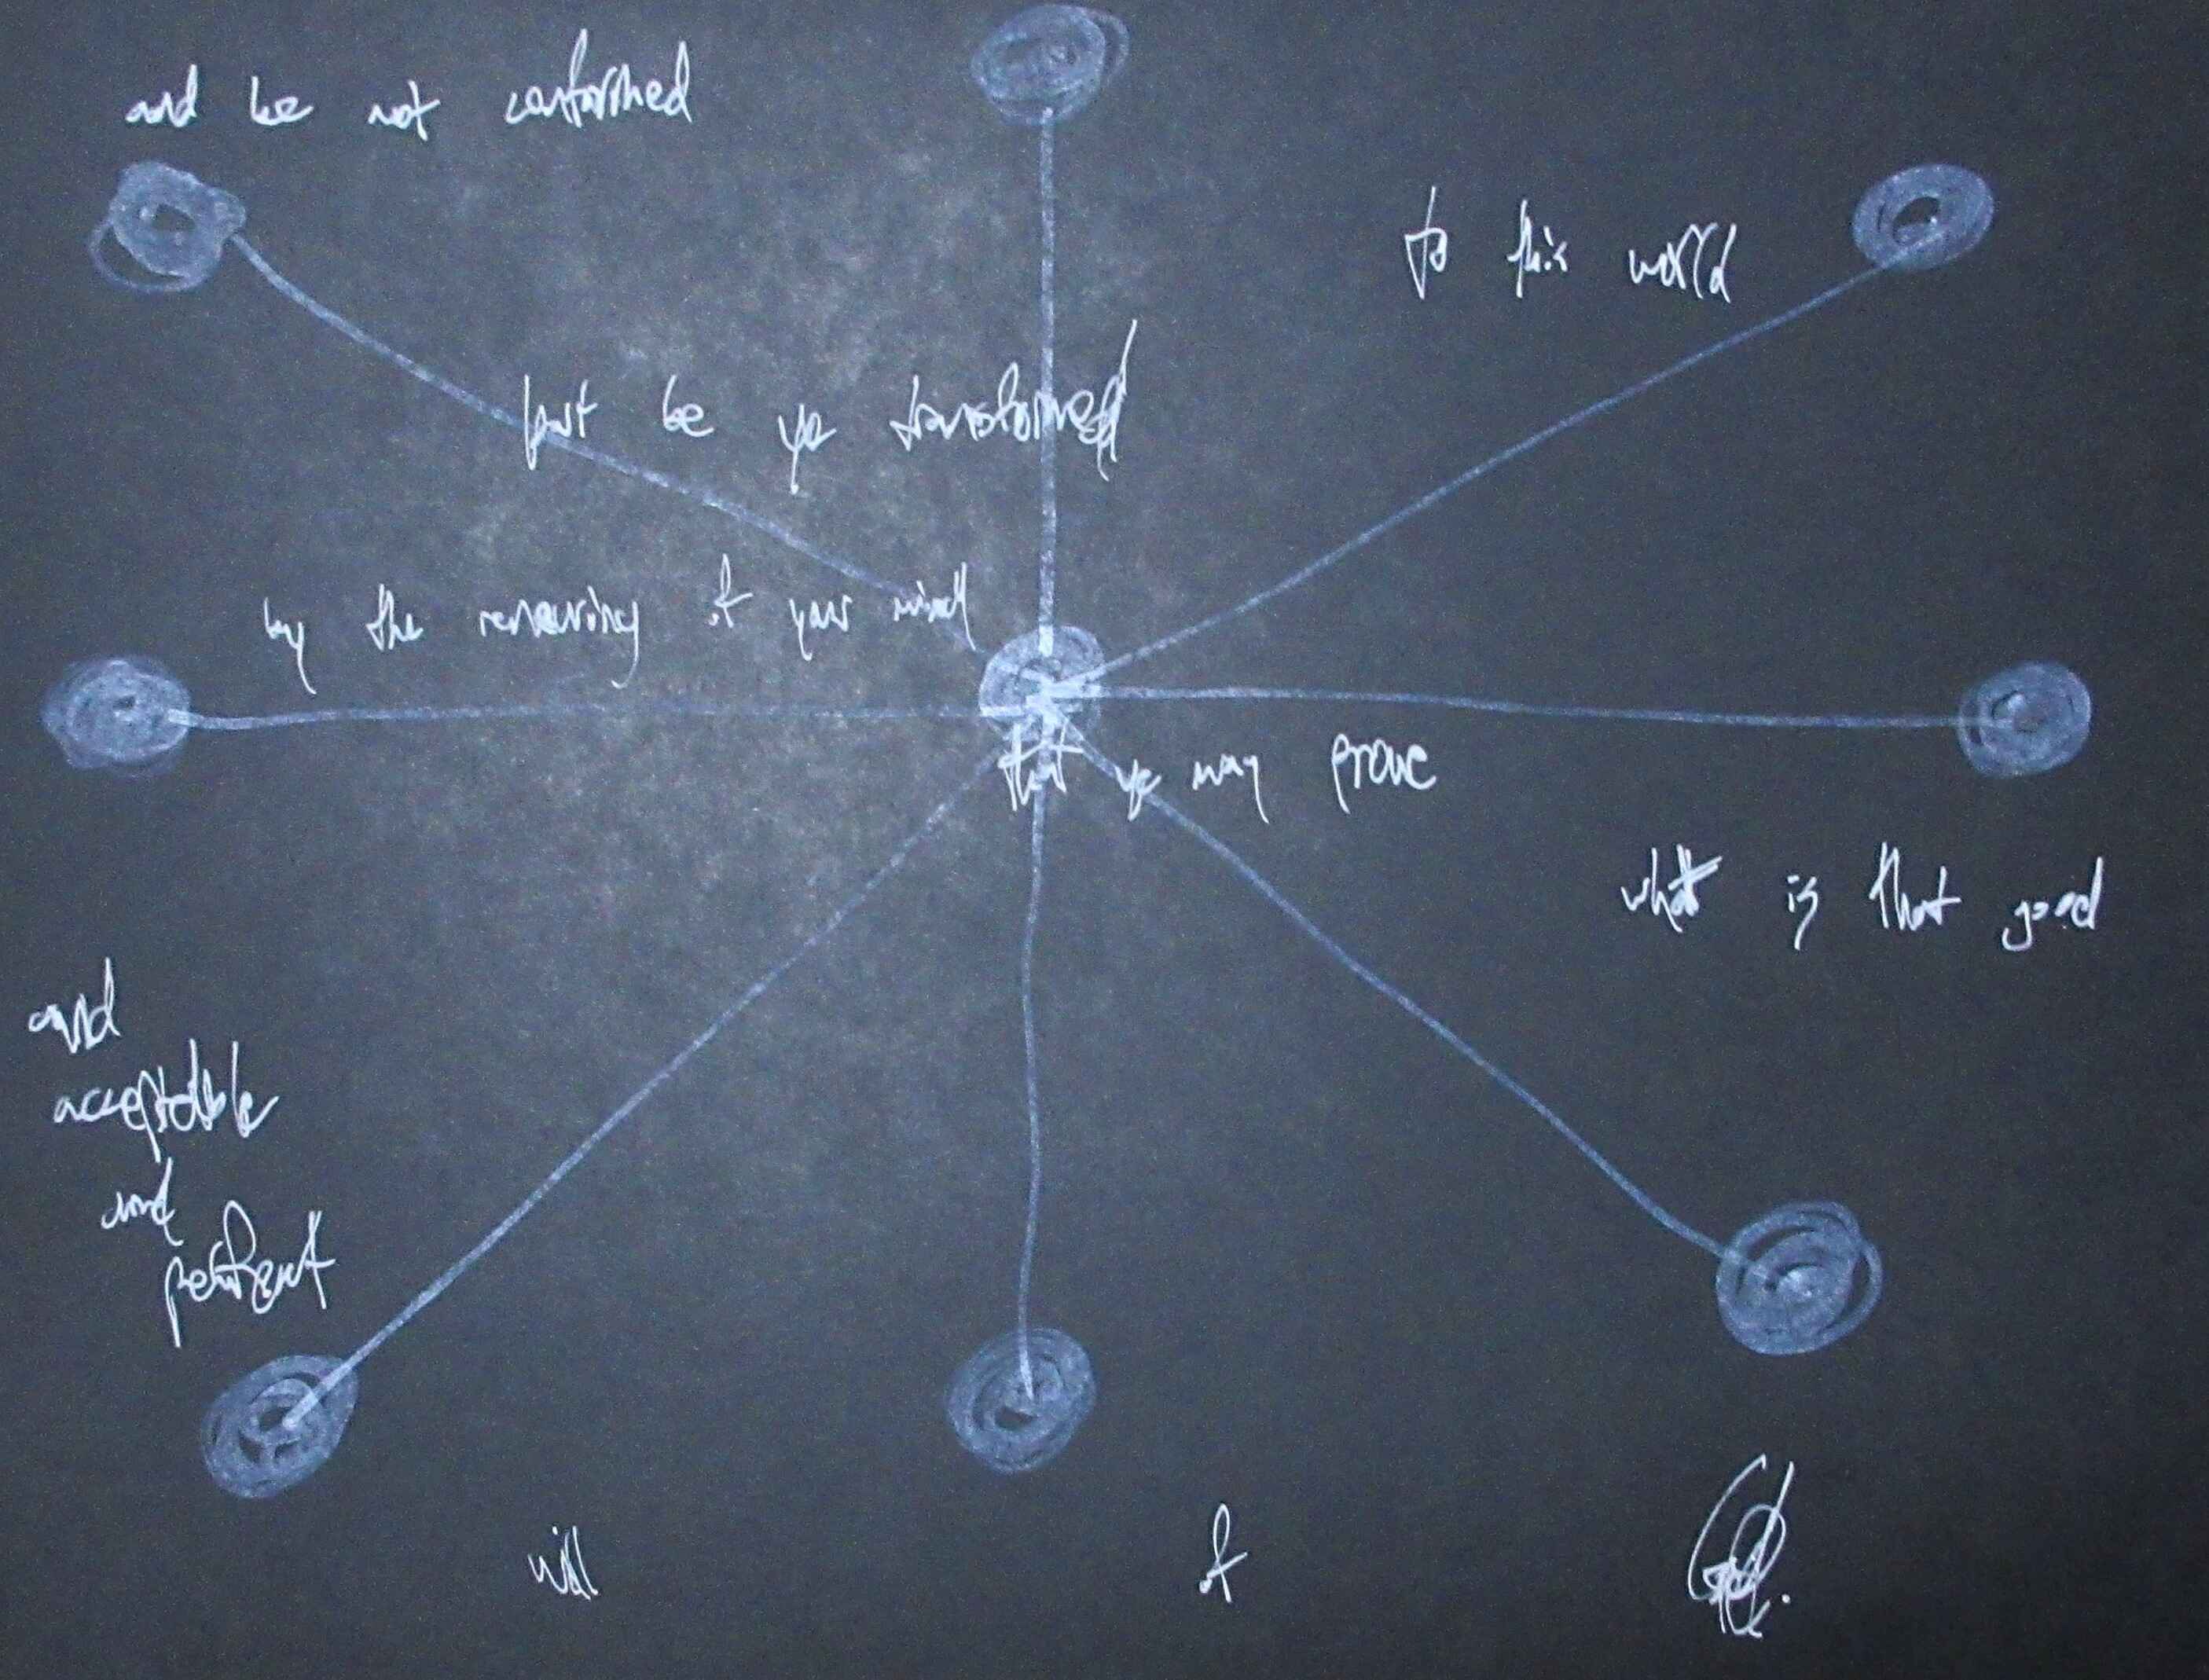 and be not conformed
to this world
but be ye transformed
by the renewing of your mind
that ye may prove
what is that good
and
acceptable
and
perfect
will of God.